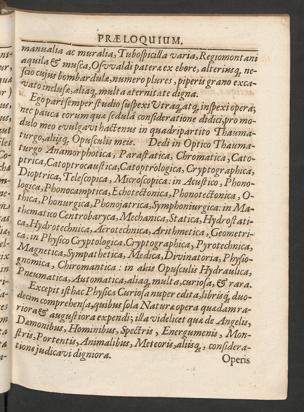 PRÆLOQUIUM.
manualia ac muralia, Tubospicilla varia, Regiomontani
aquila & musca, Osvvaldi patera ex ebore, alteriusq, ne-
scio cujus bombardulæ, numero plures, piperis grano exca-
vato inclusæ, aliaq, multa æternitate digna.
Ego pari semper studio suspexi utraq, atq, inspexi opera;
nec pauca eorum quæ sedula consideratione didici, pro mo-
dulo meo evulgavi hactenus in quadripartito Thauma-
turgo, aliisq, Opusculis meis. Dedi in Optico Thauma-
turgo Anamorphotica, Parastatica, Chromatica, Cato-
ptrica, Catoptrocaustica, Catoptrologica, Cryptographica,
Dioptrica, Telescopica, Microscopica: in Acustico, Phono-
logica, Phonocamptica, Echotectonica, Phonotectonica, O-
thica, Phonurgica, Phonojatrica, Symphoniurgica: in Ma-
thematico Centrobaryca, Mechanica, Statica, Hydrostati-
ca, Hydrotechnica, Aërotechnica, Arithmetica, Geometri-
ca: in Physico Cryptologica, Cryptographica, Pyrotechnica,
Magnetica, Sympathetica, Medica, Divinatoria, Physio-
gnomica, Chiromantica: in aliis Opusculis Hydraulica,
Pneumatica, Automatica, aliaq, multa, curiosa, & rara.
Excepit isthæc Physica Curiosa nuper edita, librisq, duo-
decim comprehensa, quibus sola Naturæ opera quædam ra-
riora & augustiora expendi; illa videlicet quæ de Angelis,
Dæmonibus, Hominibus, Spectris, Energumenis, Mon-
stris, Portentis, Animalibus, Meteoris, aliisq,, considera-
tione judicavi digniora.
Operis